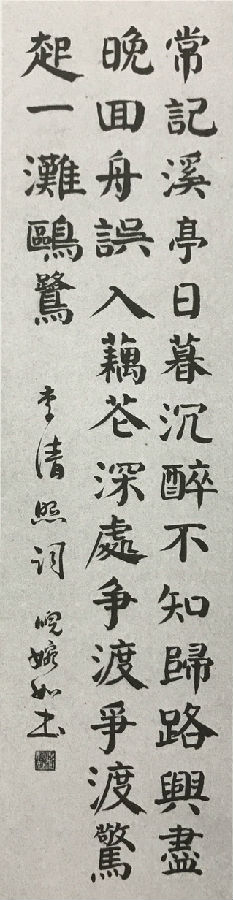 常記溪亭日暮沉醉不知歸路興盡
晚回舟誤入藕花深處爭渡爭渡驚
起一灘鷗鷺
李清照词 婉如书